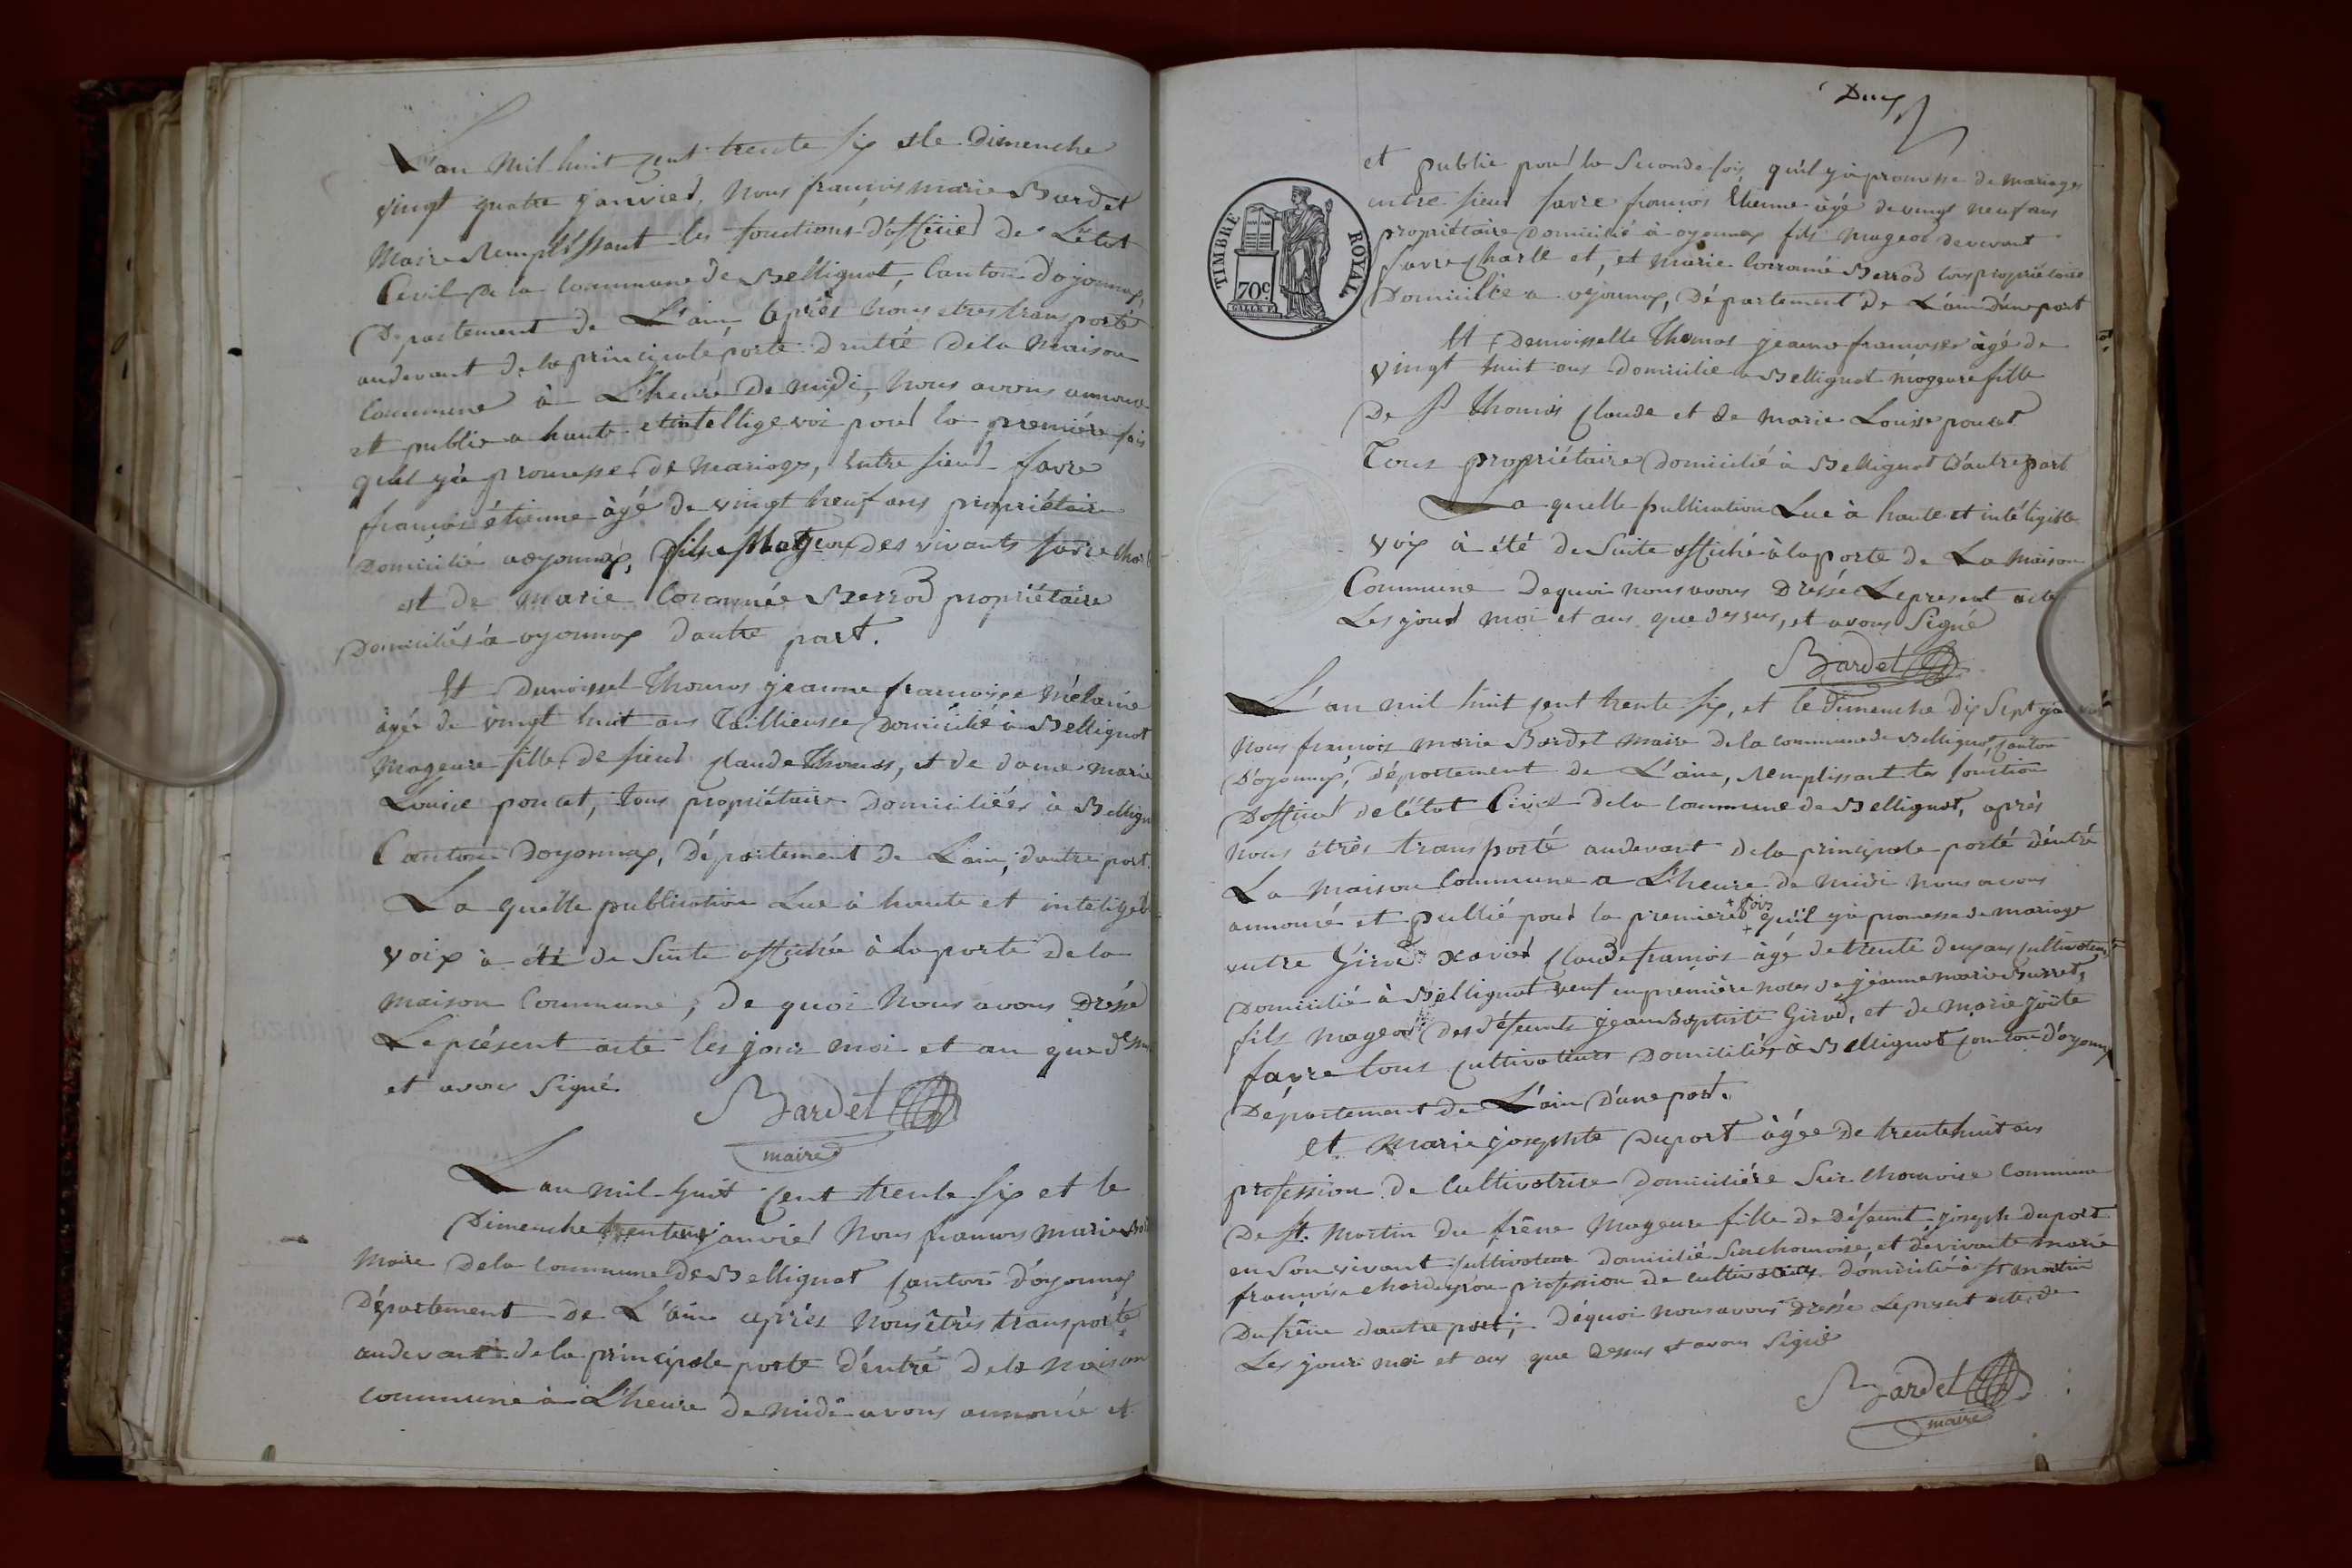 L'an mil huit cent trente six et le Dimenche
vingt quatre janvier, nous françois marie Bardet
maire Remplissant les fonctions d'officier de L'état
Civil de la Commune de Bellignat, Canton d'oyonnax,
Département de L'ain, après nous etres transporté
audevant de la principale porte d'entré de la maison
Commune à L'heure de midi, nous avons annoncé
et publié a haute et intellige voix pour la premiére fois
qu'il y à promesse de mariage, entre sieur favre
françois étienne àgé de vingt neuf ans propriétaire
Domicilié a oyonnax, fils Mageur des vivants favre
et de marie Coronnée Berrod propriétaire
Domiciliés à oyonnax dautre part.
Et Demoissel Thomas jeanne francoisse Mélanie
àgée de vingt huit ans tailleusse Domicilié à Bellignat
Mageure fille de sieur Claude Thomas, et de dame marie
Louise poncet, tous propriétaire Domiciliées à
Canton Doyonnax, département de L'ain, dautre part.
La quelle publication Lue à haute et
voix à été de suite affichée à la porte de la
maison Commune, de quoi nous avons Dréssé
Le présent acte les jour moi et an que dessus
et avons Signé.
Bardet
maire
L'an mil huit Cent trente six et le
Dimenche trente un janvier Nous francois marie
Maire De la Commune De Bellignat Canton d'oyonnax
Département de L'ain après nous êtrès transporté
audevant de la principale porte d'entré de la maison
commune à L'heure de midi avons annoncé et
Deux
TIMBRE ROYAL
70c
et publié pour la Seconde fois, qu'il y à promesse de mariage
entre sieur favre françois Etienne àgé de vingt neuf ans
propriétaire Domicilié à oyonnax fils Mageor de vivant
favre Charle et, et Marie Corronné Berrod tous propriétaire
Domicilié a oyonnax, Département de L'ain d'une part
Et Demoisselle Thomas jeanne francoise àgé de
vingt huit ans Domicilié a Bellignat mageure fille
De Sr Thomas Claude et de Marie Louisse poncet
Tous propriétaire Domicilié à Bellignat d'autre part
La quelle publication Lue à haute et intéligible
voix à été de Suite affiché à la porte de La maison
Commune De quoi nous avons Dréssé Le present acte
Les jour moi et ans que dessus, et avons Signé
Bardet
L'an mil huit cent trente six, et le Dimenche dix Sept
Nous françois marie Bardet maire de la commune de Bellignat, Canton
D'oyonnax, département de L'ain, remplissant les fonction
D'officier de l'état Civil de la Commune de Bellignat, après
Nous êtrès transporté audevant de la principale porté d'éntré
La maison Commune a L'heure de midi nous avons
annoncé et pullié pour la premiere fois qu'il y à promesse de mariage
entre Girod xavier Claude francois àgé de trente deux ans cultivateur
Domicilié à Bellignat veuf en première noces de jéanne marie
fils mageor des défeunts jean Baptiste Girod, et de Marie
favre tous cultivatteurs Domiciliés à Bellignat canton d'oyonnax
Département de L'ain D'une part.
et Marie josephte Duport àgée de trente huit ans
profession de Cultivatrice Domiciliére Commune
De St. Martin du frêne Mageure fille de Défeunt joseph duport
en Son vivant Cultivateur Domicilié et de vivante marie
francoise profession de cultivatrice domicilié à St Martin
Du frêne dautre part, Déquoi nous avons Dréssé Le present acte de
Les jour moi et ans que Dessus et avons Signé
Bardet
maire